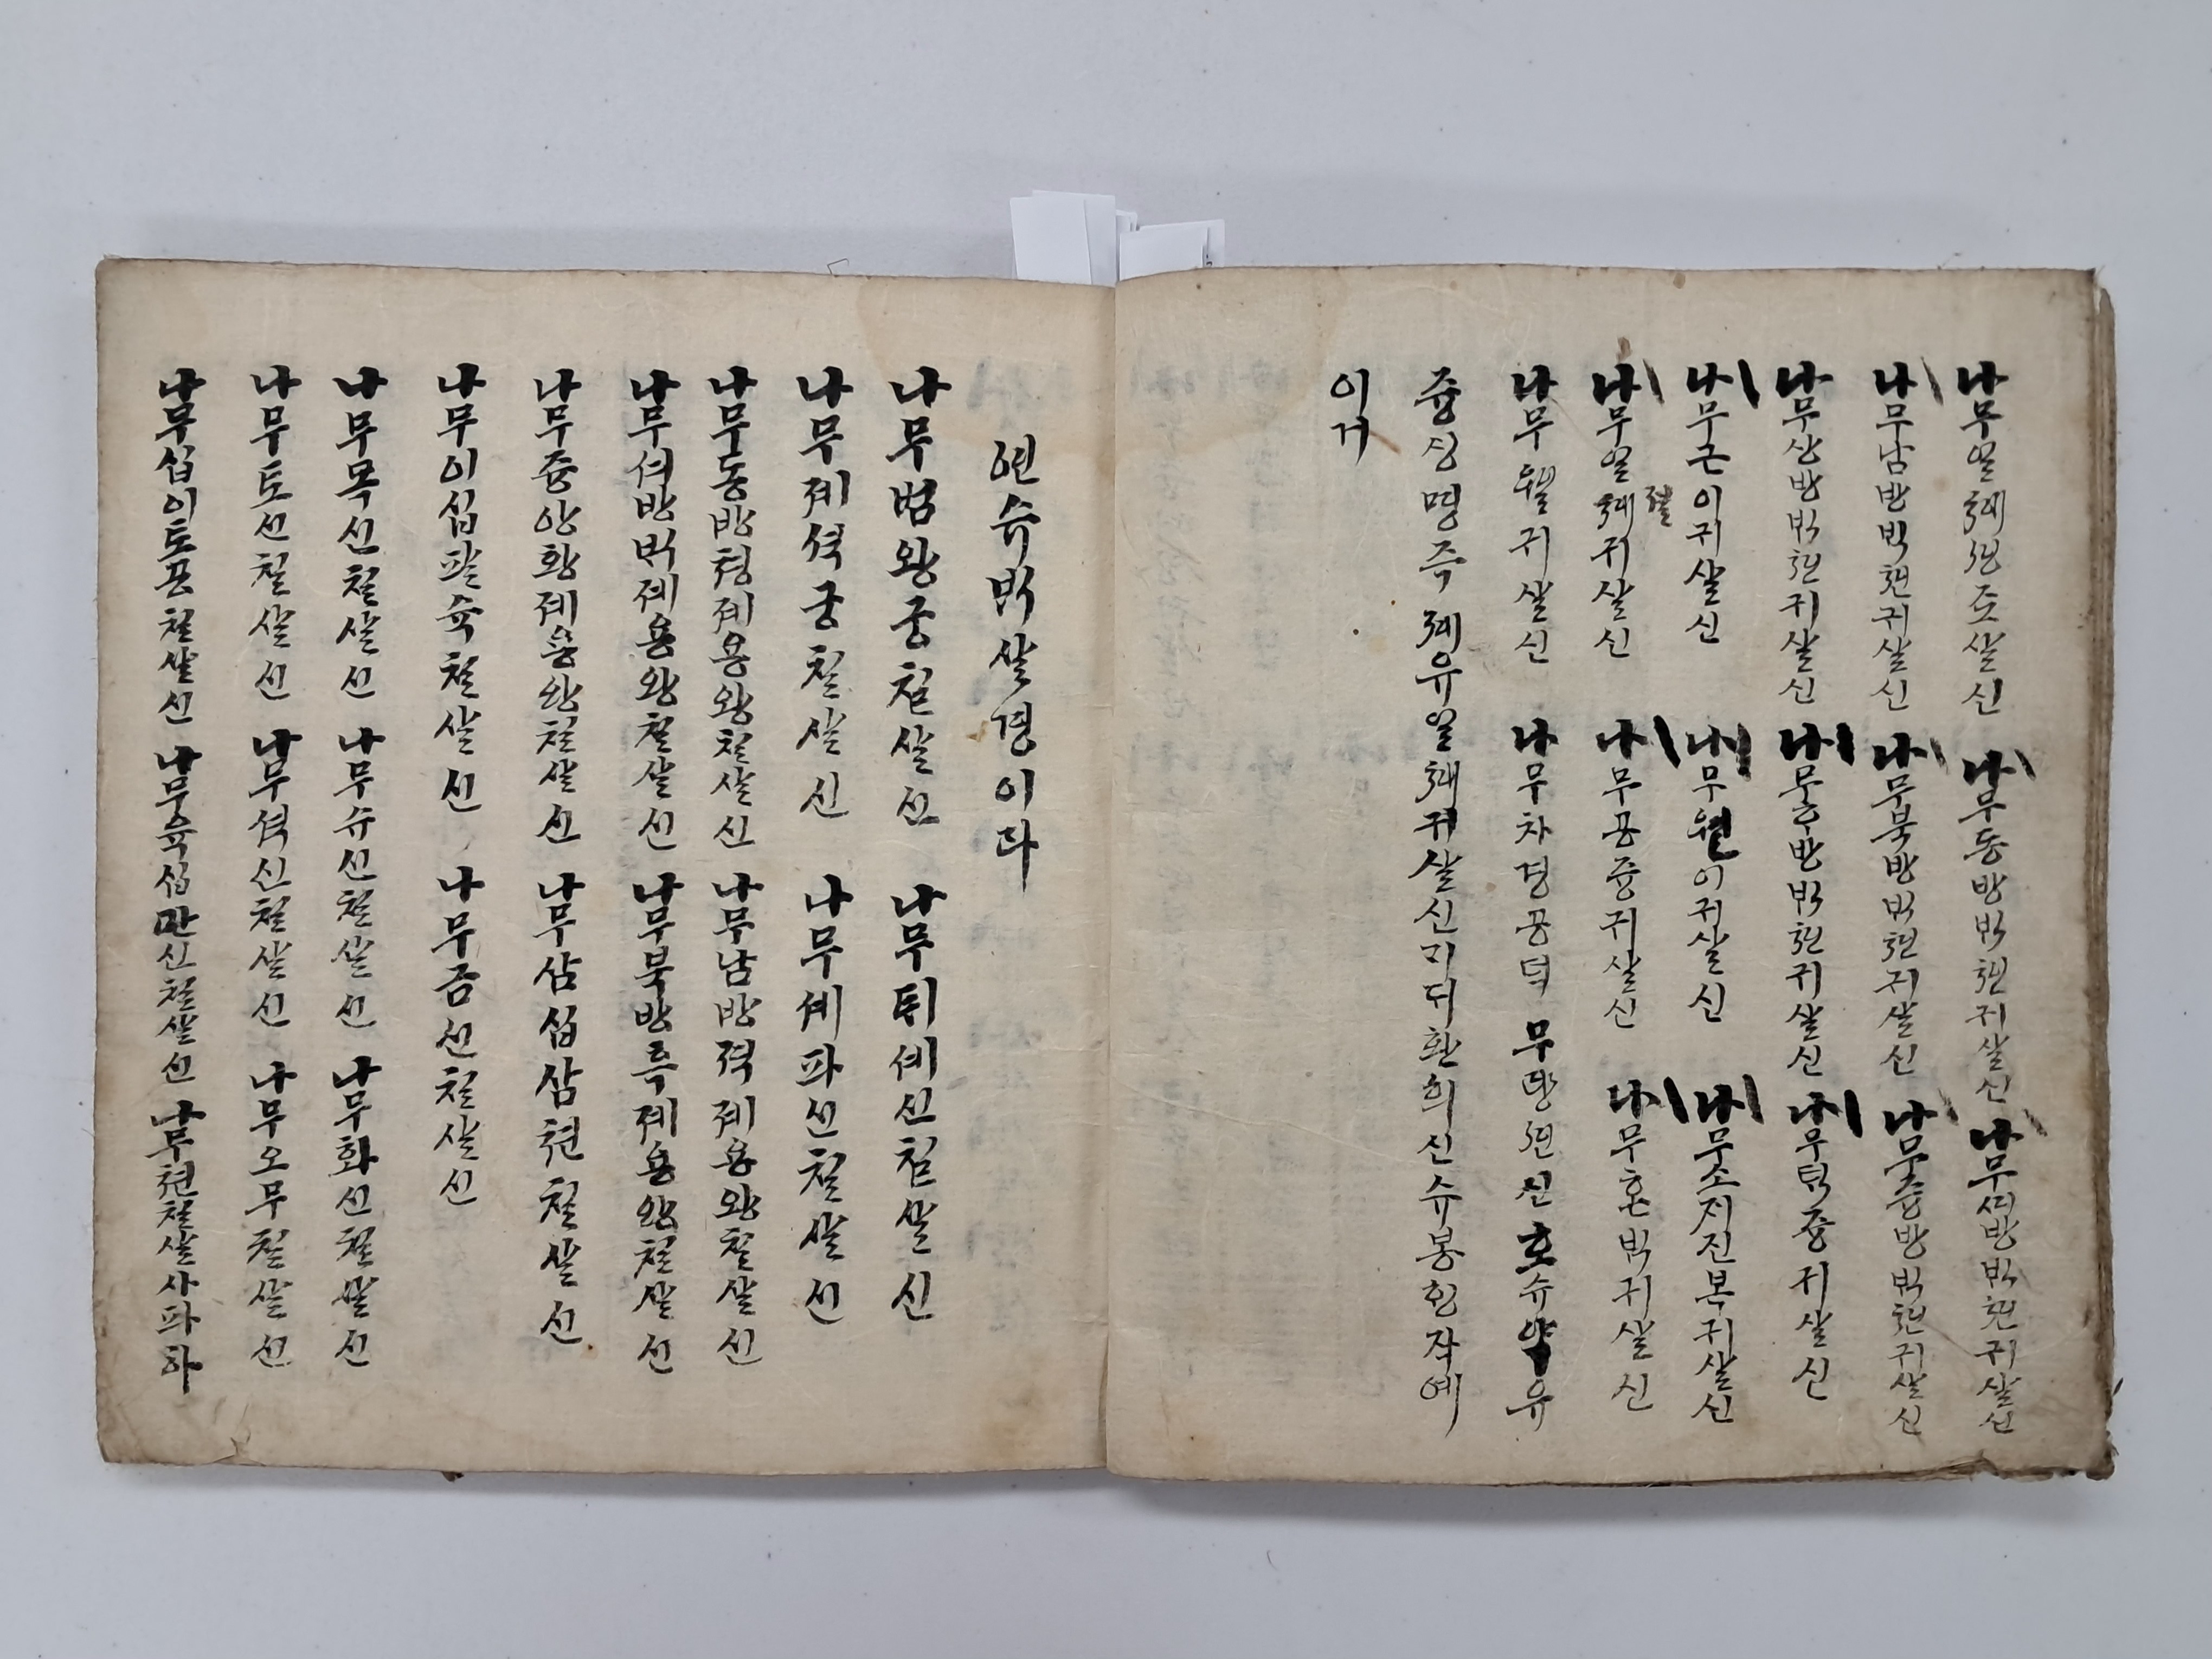 나무일체원조살신 나무동방빅쳔귀살신 나무셔방빅쳔귀살신
나무남방빅쳔귀살신 나무북방빅쳔귀살신 나무즁방빅쳔귀살신
나무상방빅쳔귀살신 나무하방빅쳔귀살신 나무텩즁귀살신
나무근이귀살신 나무원이귀살신 나무소지진복귀살신
나무일체귀살신 나무공즁귀살신 나무혼빅귀살신
나무월귀살신 나무차경공덕 무량쳔신호슈약유
즁싱명즉 졔유일체귀살신기듸환희신슈봉힝작예
이거
쳔슈빅살경이다
나무범왕궁쳘살신 나무뒤셰신쳘살신
나무졔셕궁쳘살신 나무셰파신쳘살신
나무동방쳥졔용왕쳘살신 나무남방젹졔용왕쳘살신
나무셔방빅졔용왕쳘살신 나무북방흑졔용왕쳘살신
나무즁앙황졔용왕쳘살신 나무삼십삼쳔쳘살신
나무이십팔슉쳘살신 나무금신쳘살신
나무목신쳘살신 나무슈신쳘살신 나무화신쳘살신
나무토신쳘살신 나무셕신쳘살신 나무오무쳘살신
나무십이토공쳘살신 나무육십만신쳘살신 나무쳔쳘살사파하